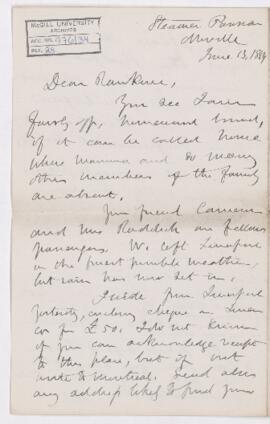 McGILL UNIVERSITY
ARCHIVES
ACC. NO. 976/34
REF. 28
Steamer Parisian
Moville
June 13, 1884
Dear Rankine
You see I am
fairly off, homeward bound,
if it can be called home
when mamma and so many
other members of the family
are absent.
Your friend Cameron
and Mrs Roddick are fellow
passengers. We left Liverpool
in the finest possible weather,
but rain has now set in.
I wrote from Liverpool
yesterday, enclosing cheque on
for £50. I do not know
if you can acknowledge receipt
to this place, but if not
write to Montreal. Send also
any address likely to find you